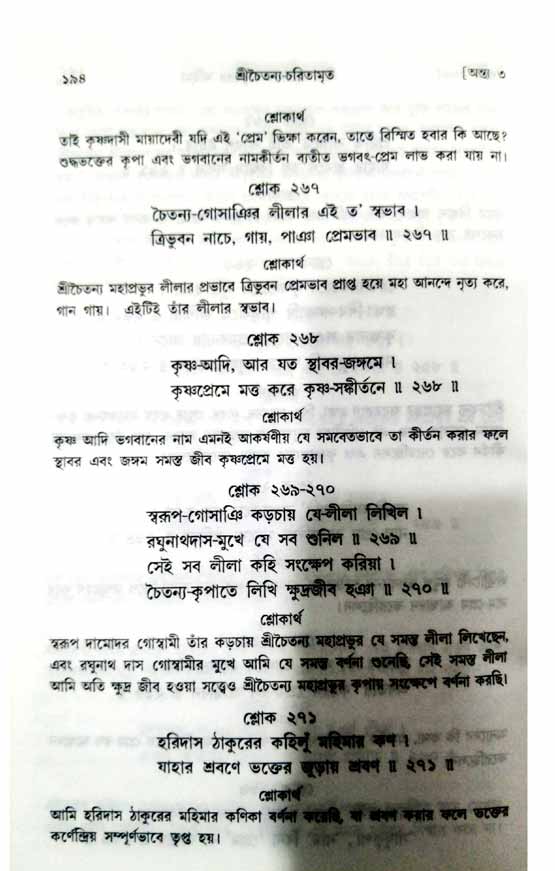 ১৯৪ শ্রীচৈতন্য-চরিতামৃত [অন্ত্য ৩
শ্লোকার্থ
তাই কৃষ্ণদাসী মায়াদেবী যদি এই 'প্রেম' ভিক্ষা করেন, তাতে বিস্মিত হবার কি আছে?
শুদ্ধভক্তের কৃপা এবং ভগবানের নামকীর্তন ব্যতীত ভগবৎ-প্রেম লাভ করা যায় না।
শ্লোক ২৬৭
চৈতন্য-গোসাঞির লীলার এই ত' স্বভাব ।
ত্রিভুবন নাচে, গায়, পাঞা প্রেমভাব ॥ ২৬৭ ॥
শ্লোকার্থ
শ্রীচৈতন্য মহাপ্রভুর লীলার প্রভাবে ত্রিভুবন প্রেমভাব প্রাপ্ত হয়ে মহা আনন্দে নৃত্য করে,
গান গায়। এইটিই তাঁর লীলার স্বভাব।
শ্লোক ২৬৮
কৃষ্ণ-আদি, আর যত স্থাবর-জঙ্গমে ।
কৃষ্ণপ্রেমে মত্ত করে কৃষ্ণ-সঙ্কীর্তনে ॥ ২৬৮ ॥
শ্লোকার্থ
কৃষ্ণ আদি ভগবানের নাম এমনই আকর্ষণীয় যে সমবেতভাবে তা কীর্তন করার ফলে
স্থাবর এবং জঙ্গম সমস্ত জীব কৃষ্ণপ্রেমে মত্ত হয়।
শ্লোক ২৬৯-২৭০
স্বরূপ-গোসাঞি কড়চায় যে-লীলা লিখিল ।
রঘুনাথদাস-মুখে যে সব শুনিল ॥ ২৬৯ ॥
সেই সব লীলা কহি সংক্ষেপ করিয়া ।
চৈতন্য-কৃপাতে লিখি ক্ষুদ্রজীব হঞা ॥ ২৭০ ॥
শ্লোকার্থ
স্বরূপ দামোদর গোস্বামী তাঁর কড়চায় শ্রীচৈতন্য মহাপ্রভুর যে সমস্ত লীলা লিখেছেন,
এবং রঘুনাথ দাস গোস্বামীর মুখে আমি যে সমস্ত বর্ণনা শুনেছি, সেই সমস্ত লীলা
আমি অতি ক্ষুদ্র জীব হওয়া সত্ত্বেও শ্রীচৈতন্য মহাপ্রভুর কৃপায় সংক্ষেপে বর্ণনা করছি।
শ্লোক ২৭১
হরিদাস ঠাকুরের কহিলুঁ মহিমার কণ ।
যাহার শ্রবণে ভক্তের জুড়ায় শ্রবণ ॥ ২৭১ ॥
শ্লোকার্থ
আমি হরিদাস ঠাকুরের মহিমার কণিকা বর্ণনা করেছি, যা শ্রবণ করার ফলে ভক্তের
কর্ণেন্দ্রিয় সম্পূর্ণভাবে তৃপ্ত হয়।